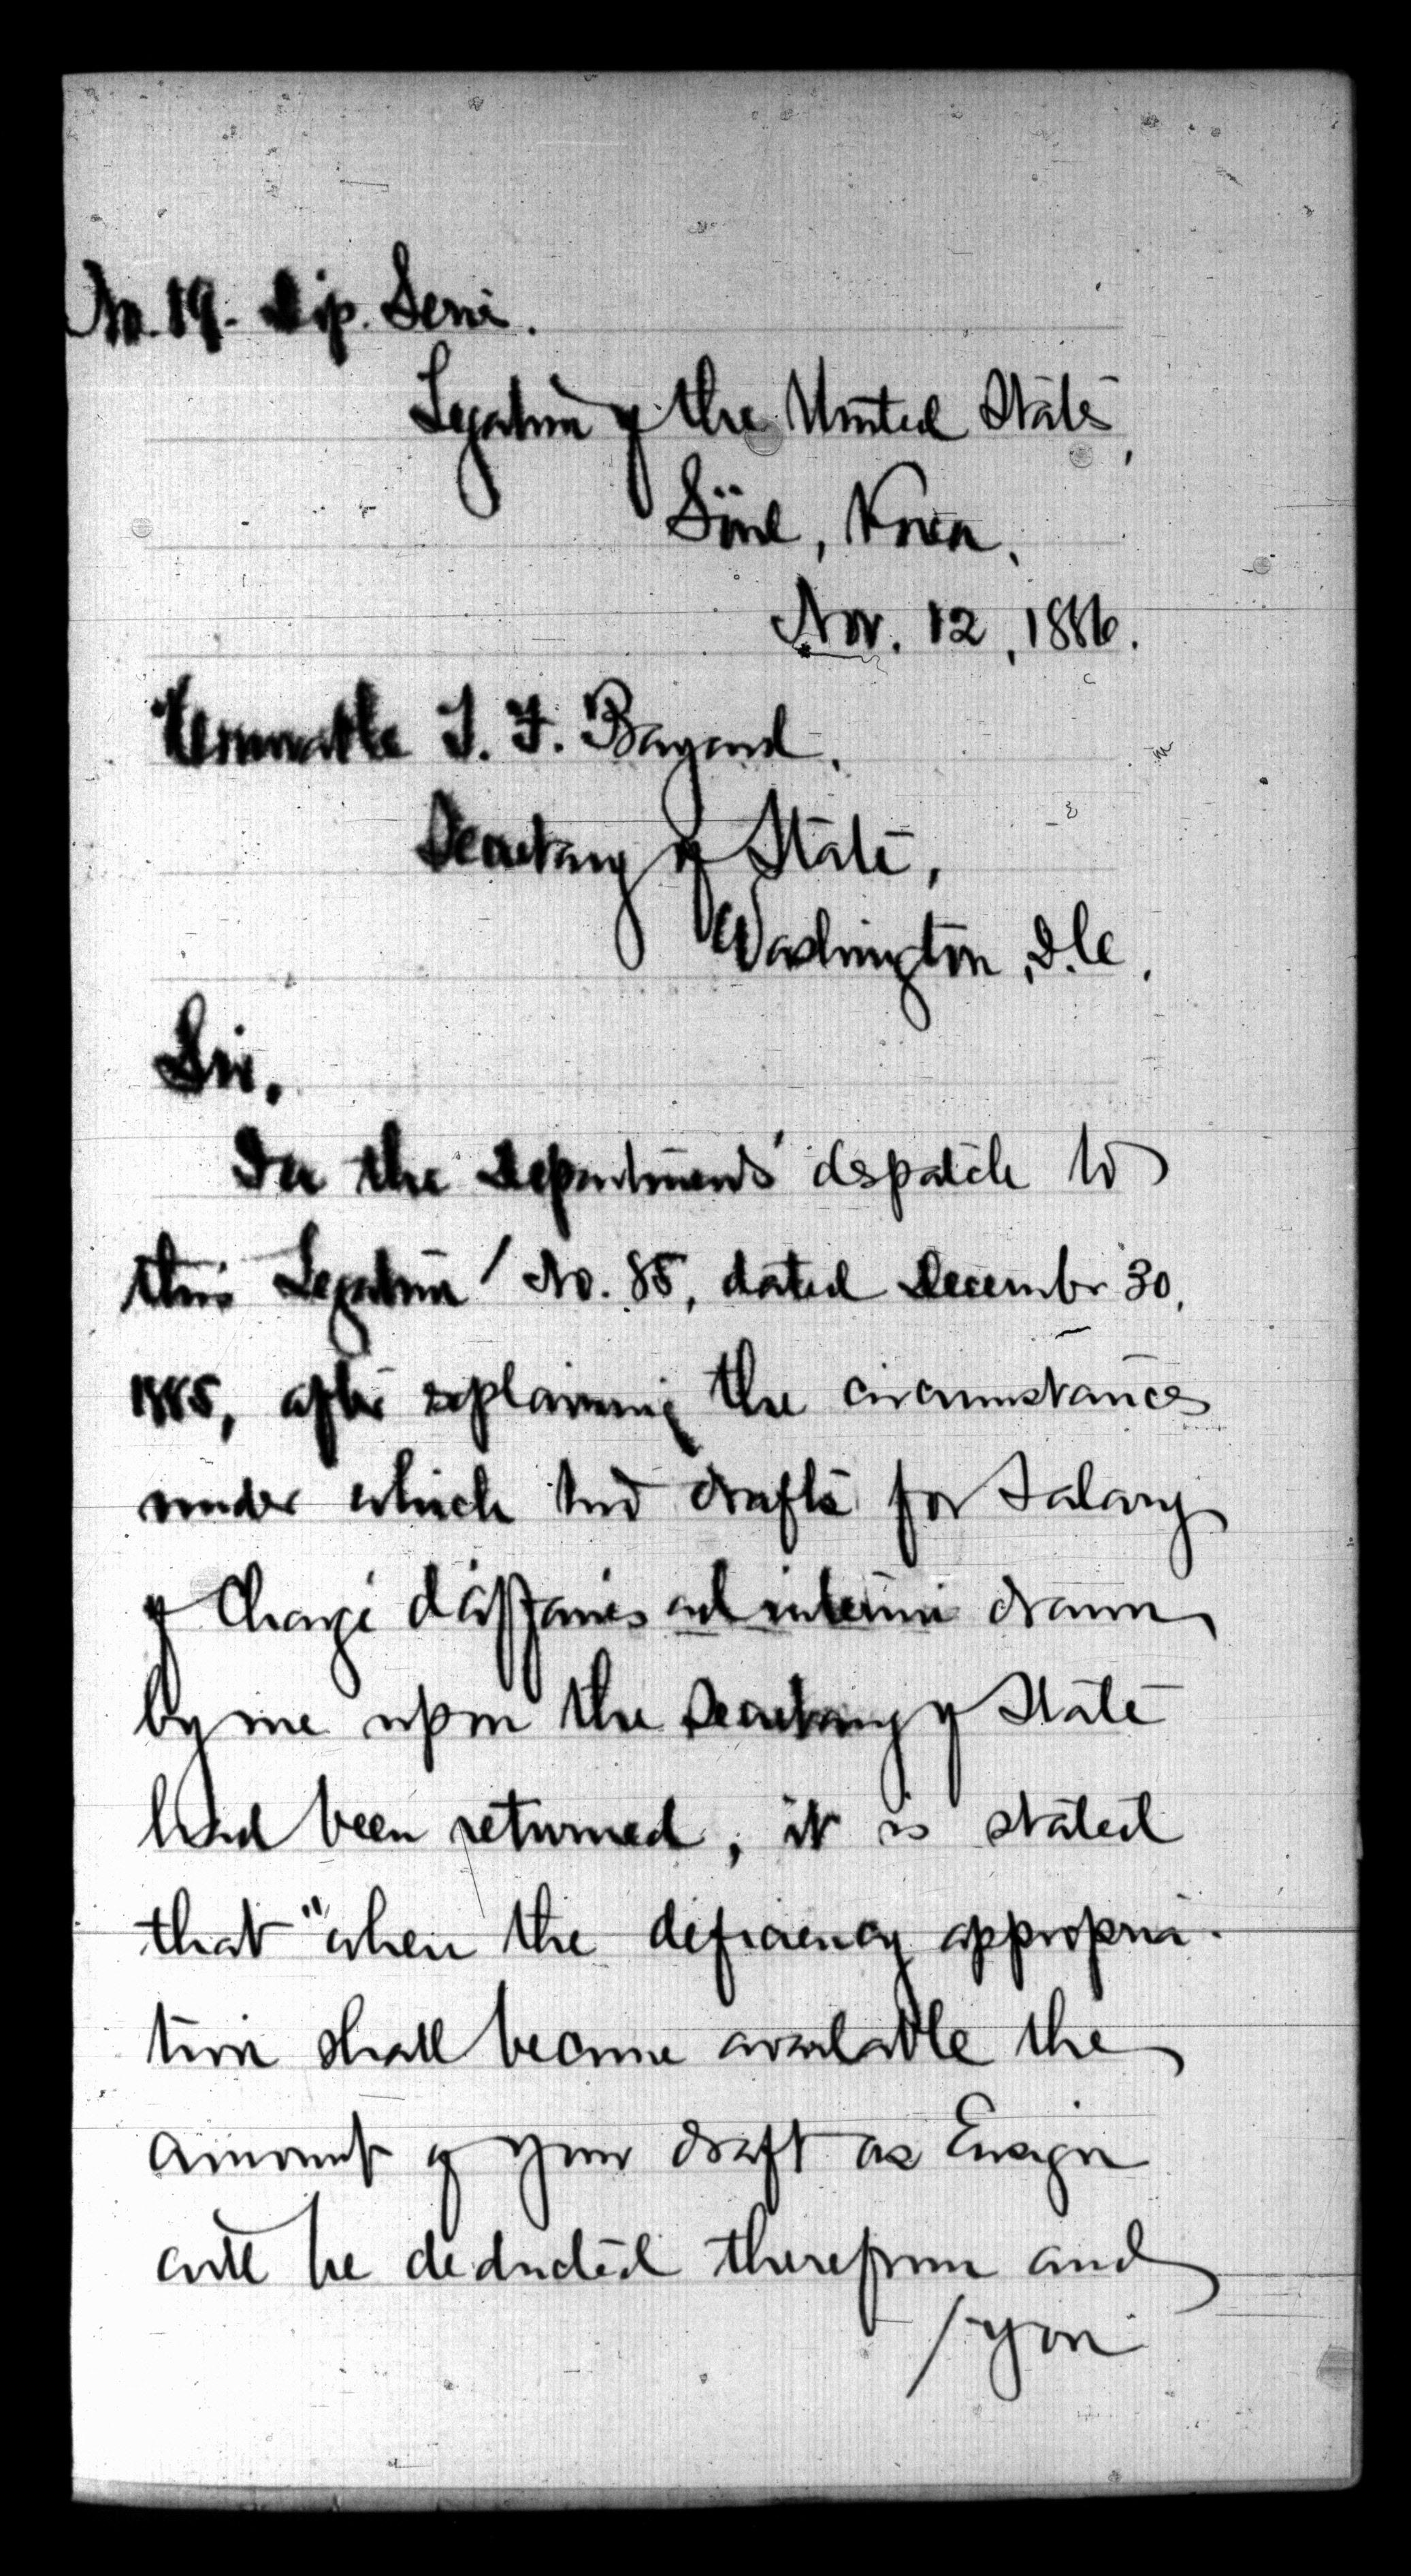 No. 19. Dip. Serie.
Legation of the United States,
Söul, Korea,
Nov. 12, 1886.
Honorable T. F. Bayard,
Secretary of State,
Washington, D.C.,
Sir,
In the Department's despatch to
this Legation No. 85, dated December 30,
1885, after explaining the circumstances
under which two drafts for Salary
of Chargé d'affaires ad interim drawn
by me upon the Secretary of State
had been returned, it is stated
that "when the deficiency appropria-
tion shall become available the
amount of your draft as Ensign
will be deducted therefrom and
/you